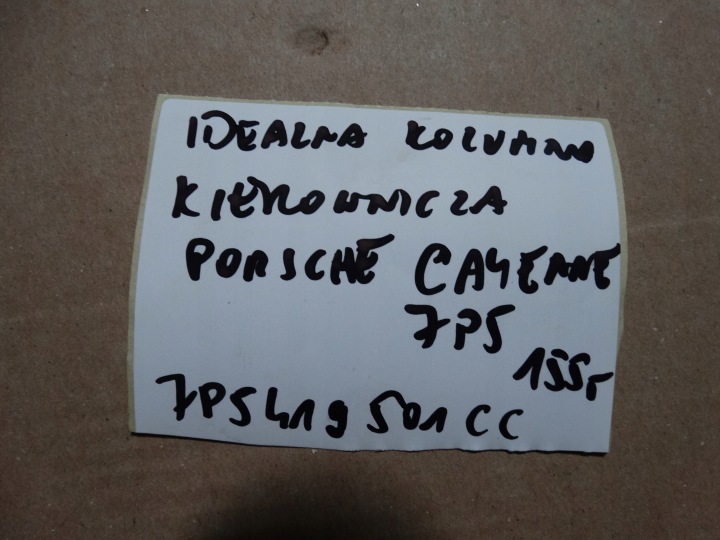 IDEALNA KOLUMNA
KIEROWNICZA
PORSCHE CAYENNE
7P5
155r
7P5419501CC